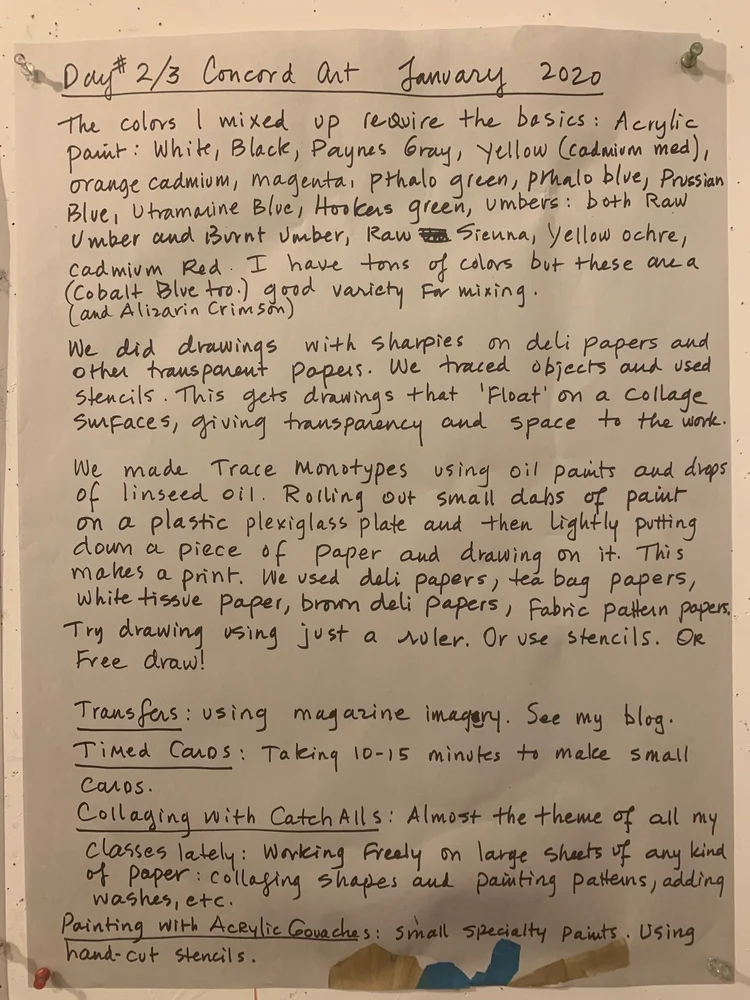 Day# 2/3 Concord Art January 2020
The colors I mixed up require the basics: Acrylic
paint: White, Black, Paynes Gray, Yellow (cadmium med),
orange cadmium, magenta, pthalo green, pthalo blue, Prussian
Blue, Utramarine Blue, Hookers green, umbers: both Raw
Umber and Burnt Umber, Raw Sienna, Yellow ochre,
cadmium Red. I have tons of colors but these are a
(Cobalt Blue too.) good variety for mixing.
(and Alizarin Crimson)
We did drawings with sharpies on deli papers and
other transparent papers. We traced objects and used
stencils. This gets drawings that 'Float' on a collage
surfaces, giving transparency and space to the work.
We made Trace Monotypes using oil paints and drops
of linseed oil. Rolling out small dabs of paint
on a plastic plexiglass plate and then lightly putting
down a piece of paper and drawing on it. This
makes a print. We used deli papers, tea bag papers,
white tissue paper, brown deli papers, fabric pattern papers.
Try drawing using just a ruler. Or use stencils. OR
Free draw!
Transfers: using magazine imagery. See my blog.
Timed Cards: Taking 10-15 minutes to make small
cards.
Collaging with Catch Alls: Almost the theme of all my
classes lately: Working freely on large sheets of any kind
of paper: collaging shapes and painting patterns, adding
washes, etc.
Painting with Acrylic Gouaches: small specialty paints. Using
hand-cut stencils.